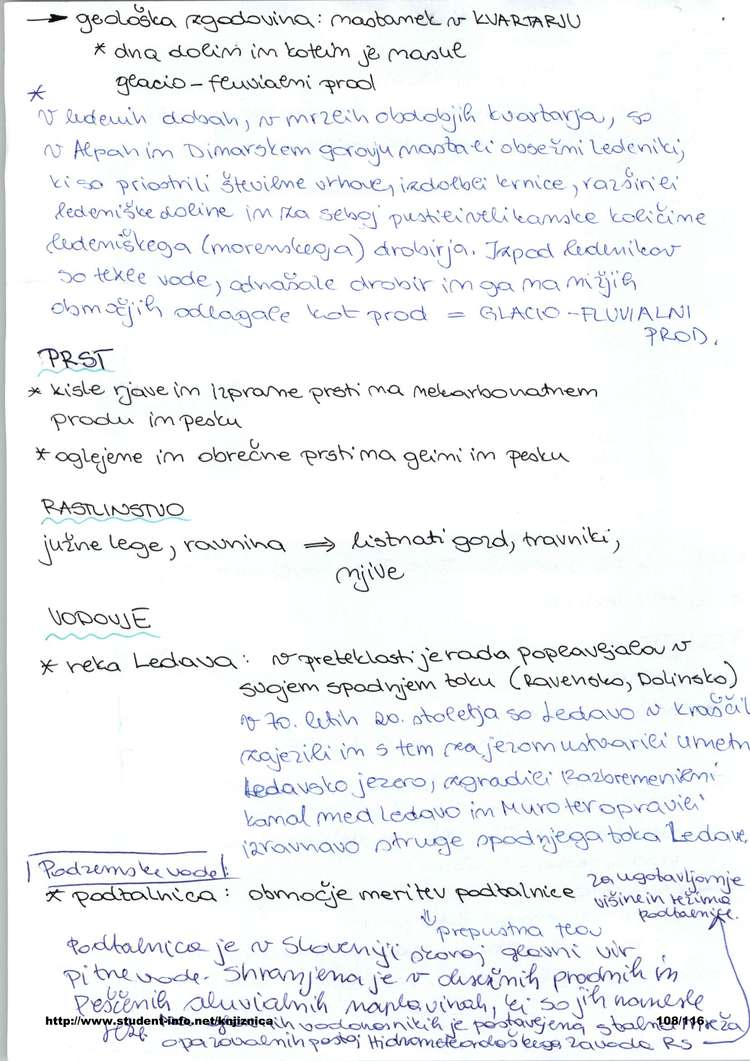 → geološka zgodovina: nastanek v KVARTARJU
* dna dolin in kotlin je nasul
glacio-fluvialni prod
*
V ledenih dobah, v mrzlih obdobjih kvartarja, so
v Alpah in Dinarskem gorovju nastali obsežni ledeniki,
ki so priostrili številne vrhove, izdolbli krnice, razširili
ledeniške doline in za seboj pustili velikanske količine
ledeniškega (morenskega) drobirja. Izpod ledenikov
so tekle vode, odnašale drobir in ga na nižjih
območjih odlagale kot prod = GLACIO-FLUVIALNI
PROD.
PRST
* kisle rjave in izprane prsti na nekarbonatnem
produ in pesku
* oglejene in obrečne prsti na glini in pesku
RASTLINSTVO
južne lege, ravnina ⇒ listnati gozd, travniki,
njive
VODOVJE
* reka Ledava: v preteklosti je rada poplavljala v
svojem spodnjem toku (Ravensko, Dolinsko)
v 70. letih 20. stoletja so Ledavo v Kraščih
zajezili in s tem za jezom ustvarili umetn
Ledavsko jezero, zgradili razbremenilni
kanal med Ledavo in Muro ter opravili
izravnavo struge spodnjega toka Ledave.
Podzemske vode:
* podtalnica: območje meritev podtalnice
za ugotavljanje
višine in režima
podtalnice.
⇓ prepustna tla
Podtalnica je v Sloveniji skoraj glavni vir
pitne vode. Shranjena je v obsežnih prodnih in
peščenih aluvialnih naplavinah, ki so jih nanesle
http://www.student-info.net/knjiznica
vodonosnikih je postavljena stalna mreža
108/116
opazovalnih postaj Hidrometeorološkega zavoda RS